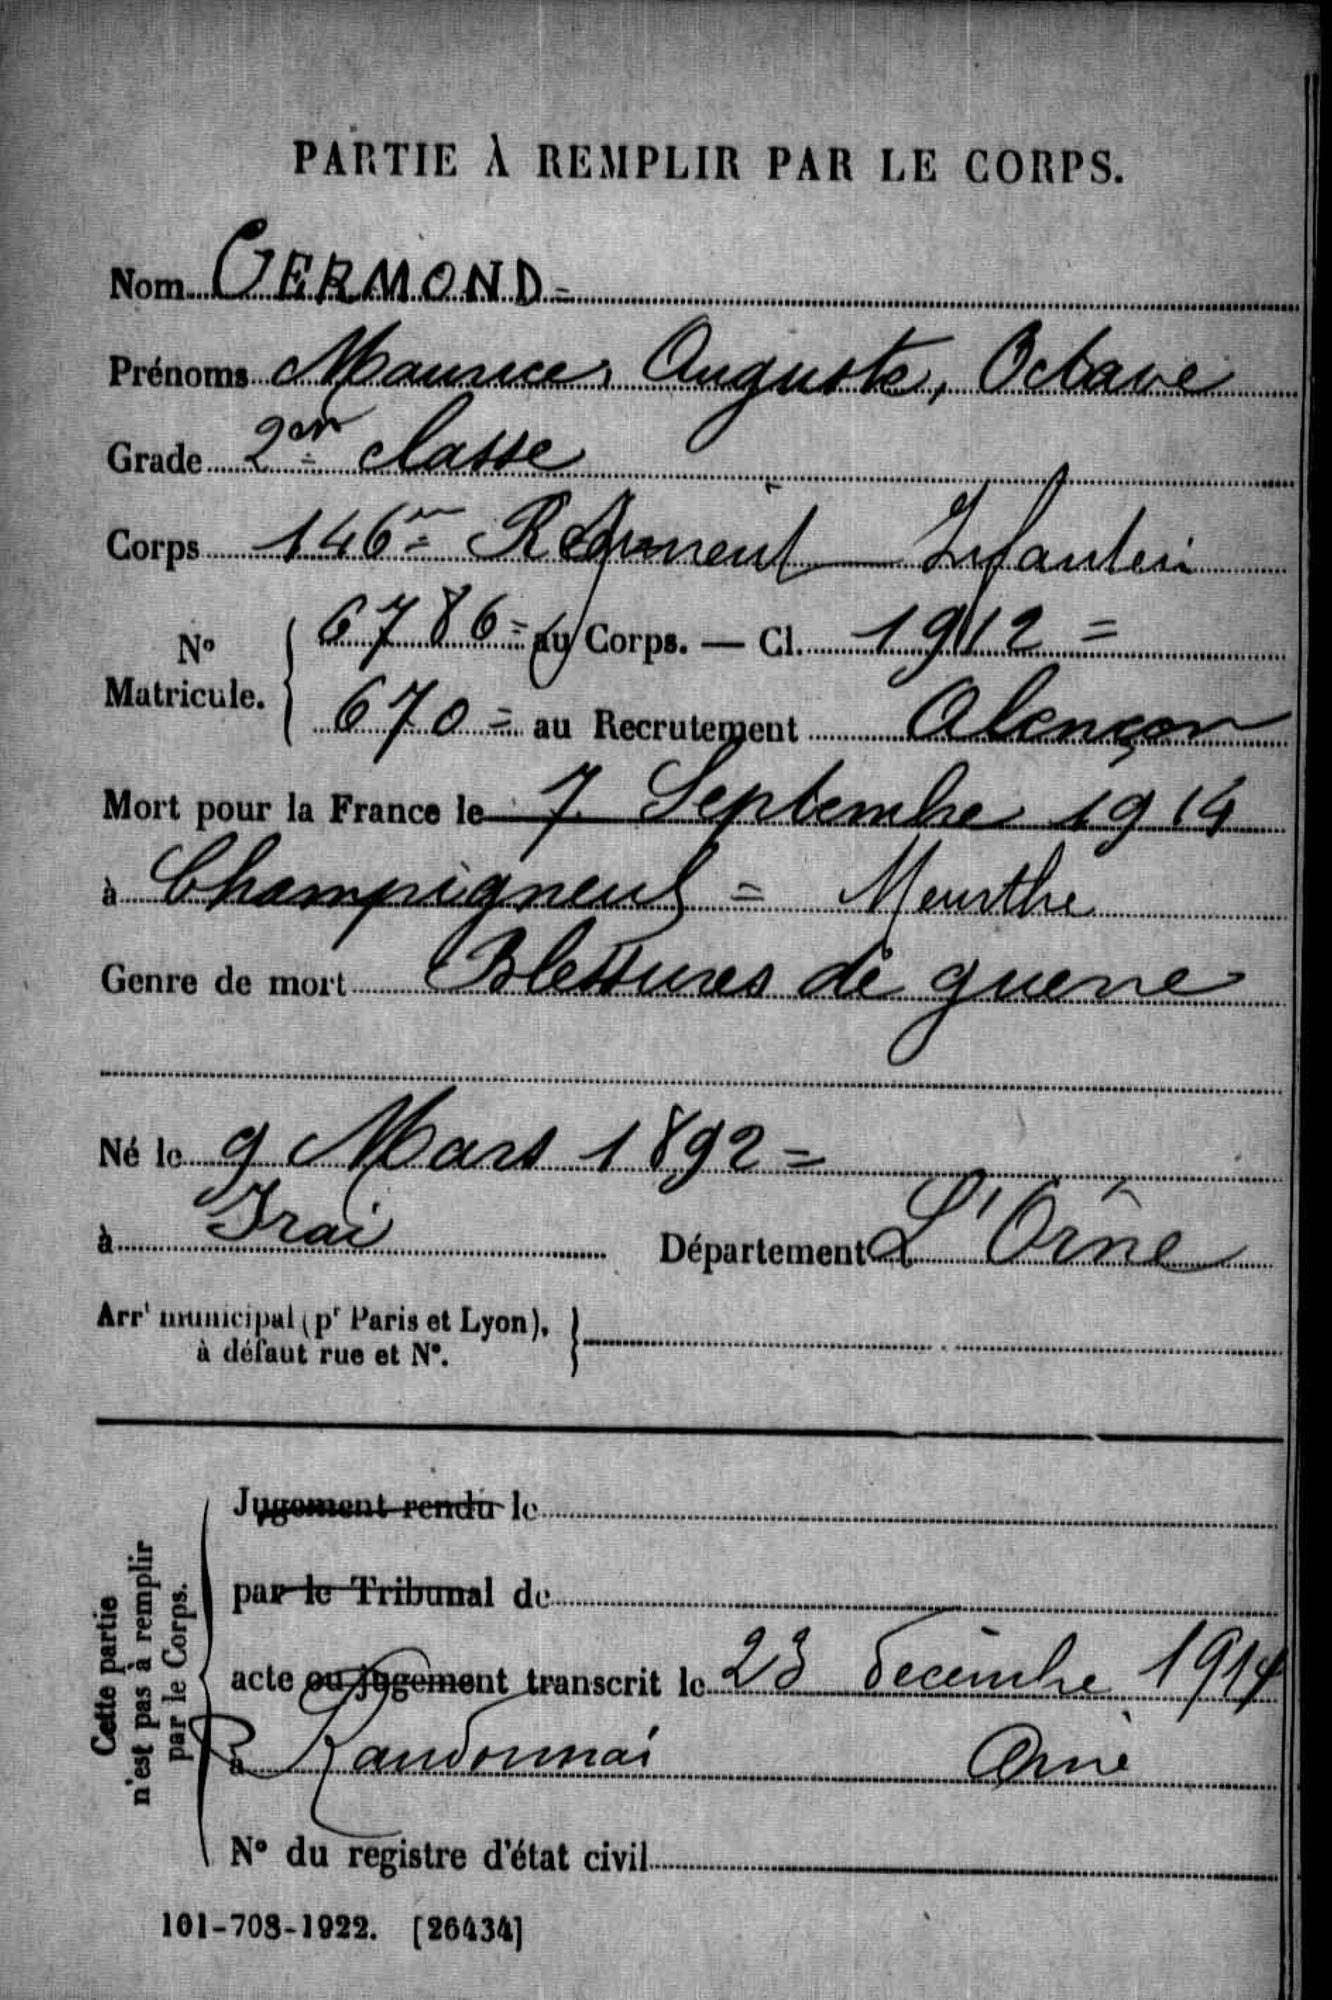 PARTIE À REMPLIR PAR LE CORPS.
Nom GERMOND =
Prénoms Maurice, Auguste, Octave
Grade 2em classe
Corps 146e = Régiment Infanterie
No Matricule. 6786 = au Corps. — Cl. 1912 =
670 = au Recrutement Alençon
Mort pour la France le 7 Septembre 1914
à Champigneul = Meurthe
Genre de mort Blessures de guerre
Né le 9 Mars 1892 =
à Irai Département L'Orne
Arrt municipal (pr Paris et Lyon),
à défaut rue et No.
Cette partie
n'est pas à remplir
par le Corps.
Jugement rendu le
par le Tribunal de
acte ou jugement transcrit le 23 decembre 1914
à Randonnai Orne
No du registre d'état civil
101-708-1922. [26434]